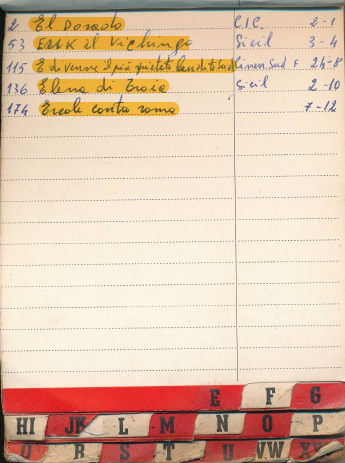 2 El Dorado C.I.C. 2-1
53 ERIK il Vichingo Sicil 3-4
115 E divenne il più spietato bandito Sud F 24-8
136 Elena di Troia Sicil 2-10
174 Ercole contro roma 7-12
E F G
HI JK L M N O P
R S T U VW XY